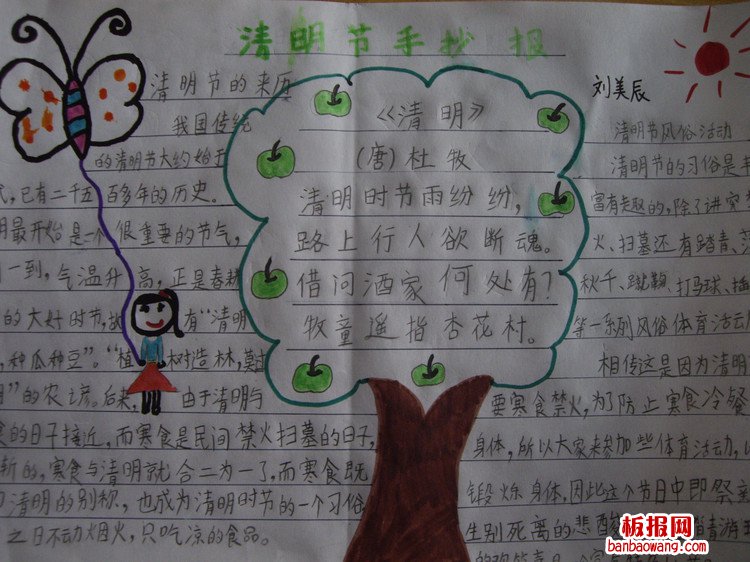 清明节手抄报
刘美辰
清明节的来历
我国传统
的清明节大约始于
代,已有二千五百多年的历史。
明最开始是一个很重要的节气,
一到,气温升高,正是春耕
的大好时节,故有“清明
,种瓜种豆”。“植树造林,莫过
明”的农谚。后来,由于清明与
食的日子接近,而寒食是民间禁火扫墓的日子,
渐的,寒食与清明就合二为一了,而寒食既
清明的别称,也成为清明时节的一个习俗
之日不动烟火,只吃凉的食品。
《清明》
(唐)杜牧
清明时节雨纷纷,
路上行人欲断魂。
借问酒家何处有?
牧童遥指杏花村。
清明节风俗活动
清明节的习俗是丰
富有趣的,除了讲究禁
火、扫墓还有踏青、荡
秋千、蹴鞠、打马球、插
等一系列风俗体育活动
相传这是因为清明
要寒食禁火,为了防止寒食冷餐
身体,所以大家来参加些体育活动,以
锻炼身体,因此这个节日中即祭
生别死离的悲酸 踏青游玩
板报网
banbaowang.com